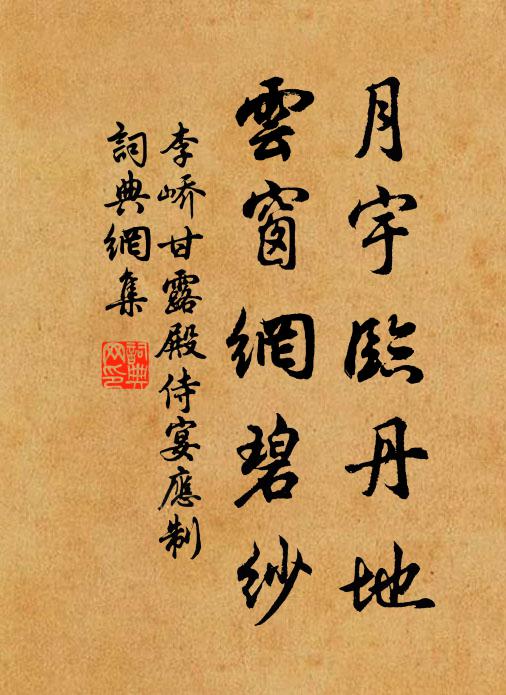 月宇臨丹地
雲窗網碧紗
李嶠甘露殿侍宴應制
詞典網集
詞典網印